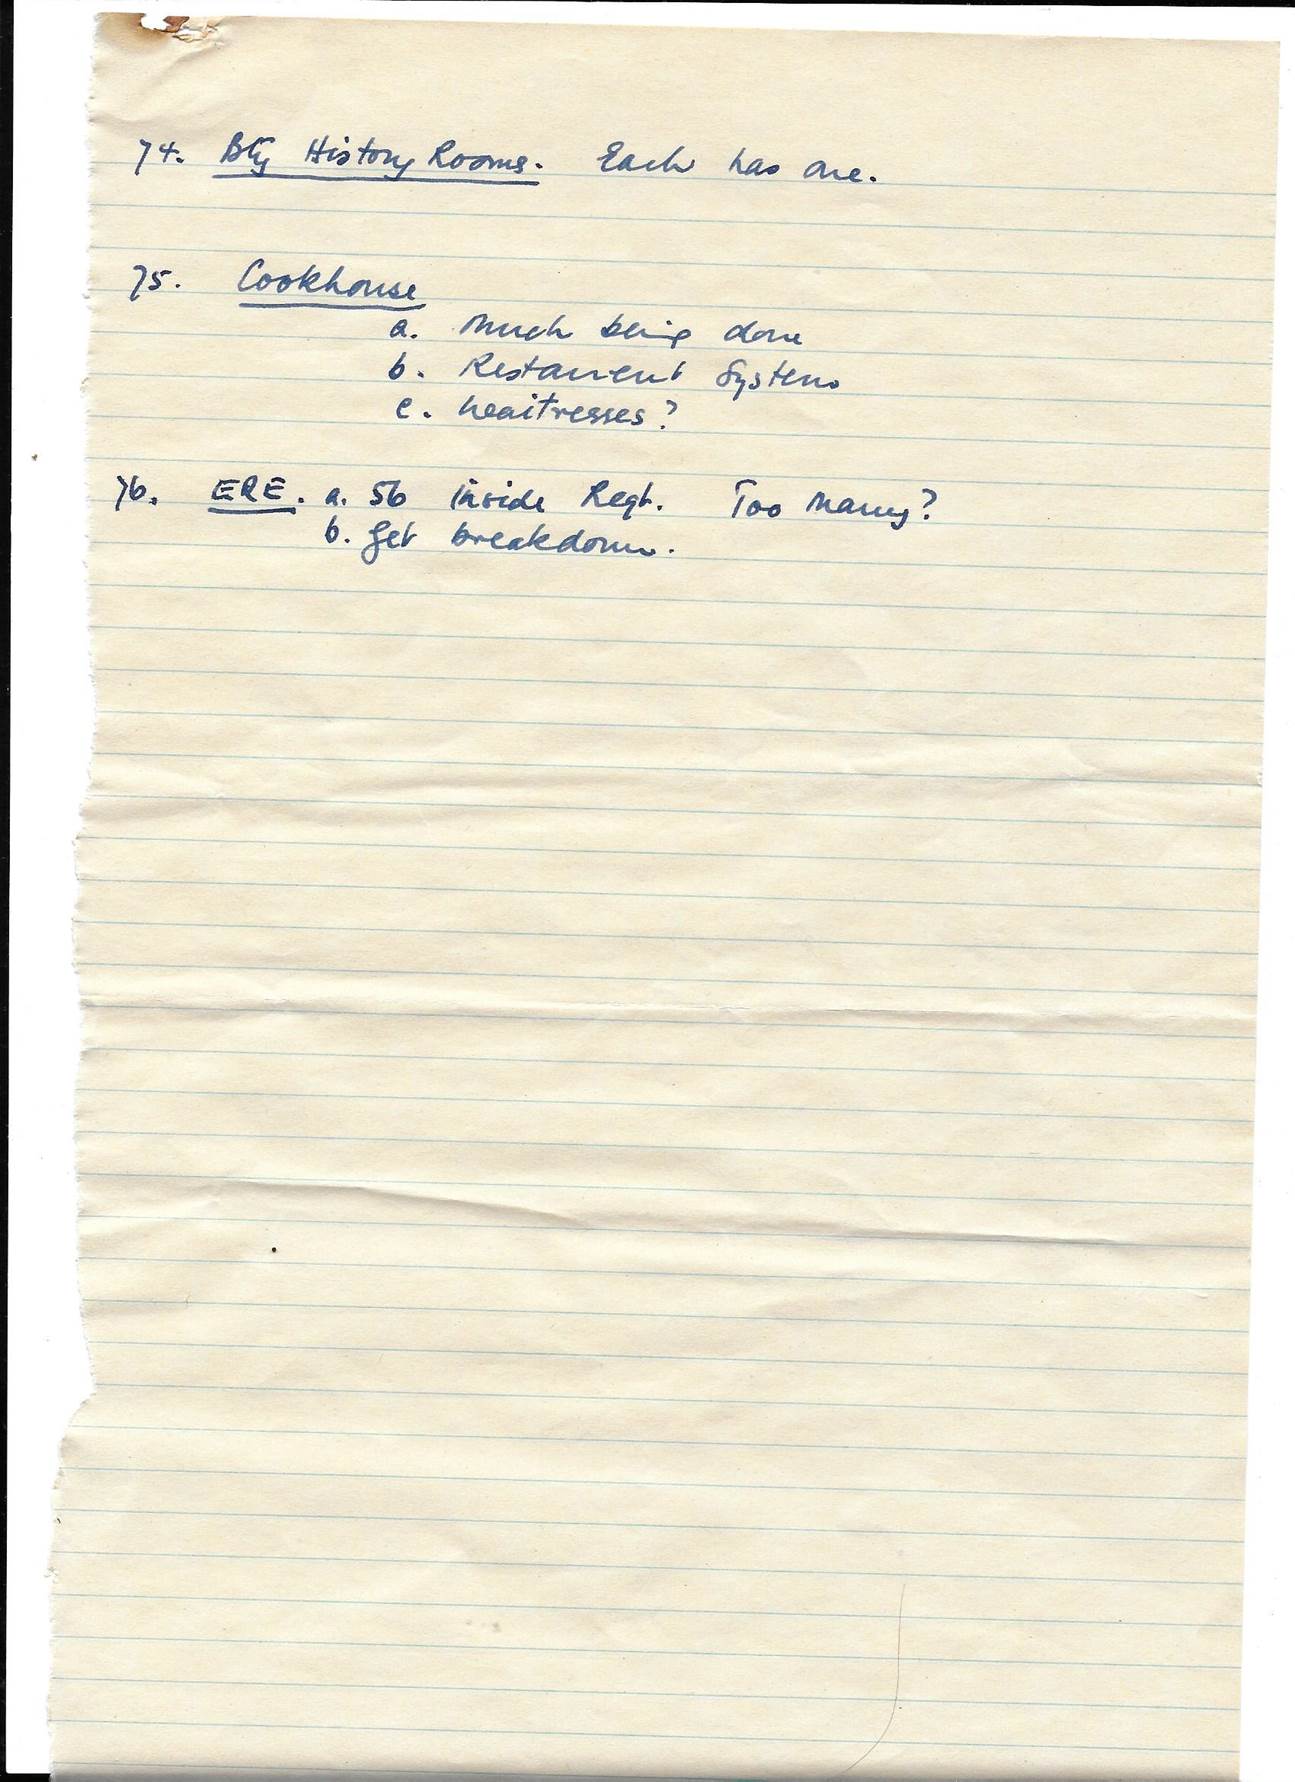 74. Bty History Rooms. Each has one.
75. Cookhouse
a. Much being done
b. Restaurent System
c. Waitresses?
76. ERE. a. 56 inside Regt. Too Many?
b. Get breakdown.